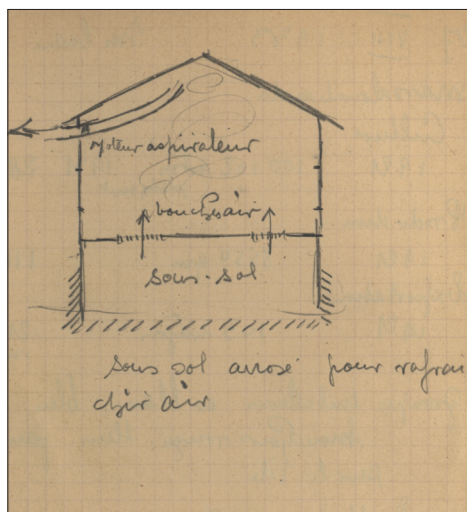 moteur aspirateur
bouches air
sous-sol
sous sol arrosé pour rafrai
chir air